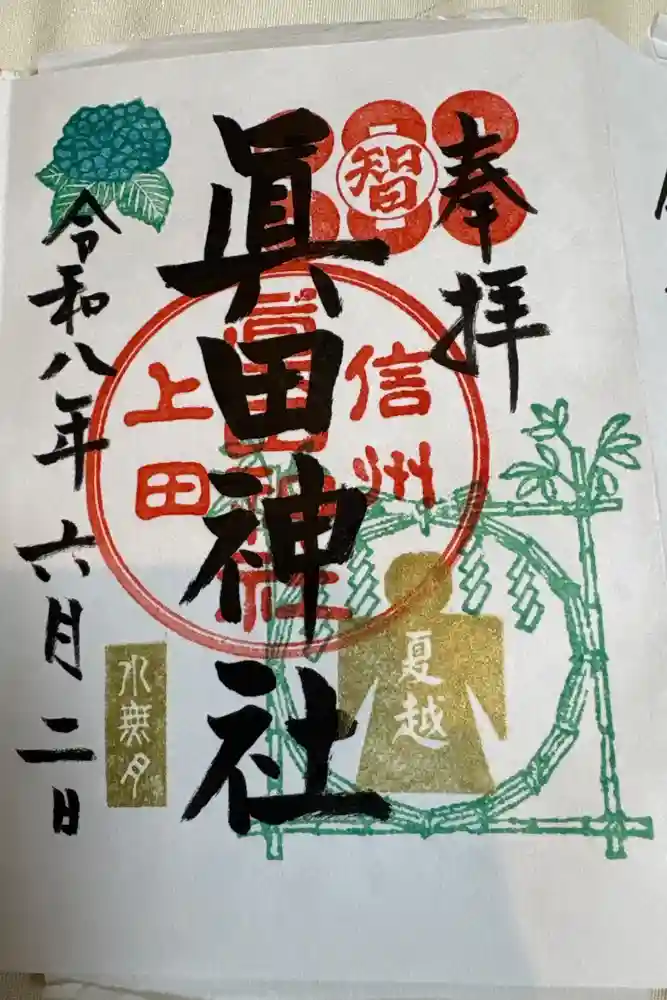 奉拝
智
信州
眞田神社
眞田神社
上田
夏越
水無月
令和八年六月二日